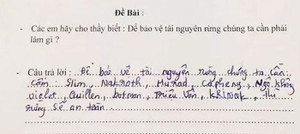 Đề Bài :
- Các em hãy cho thầy biết : Để bảo vệ tài nguyên rừng chúng ta cần phải
làm gì ?
- Câu trả lời : Để bảo vệ tài nguyên rừng chúng ta cần
cấm Slim, Nakroth, Murad, Capheny, Ngộ Không
violet, Quillen, butnan, Triệu Vân, kriknak, thì
rừng sẽ an toàn